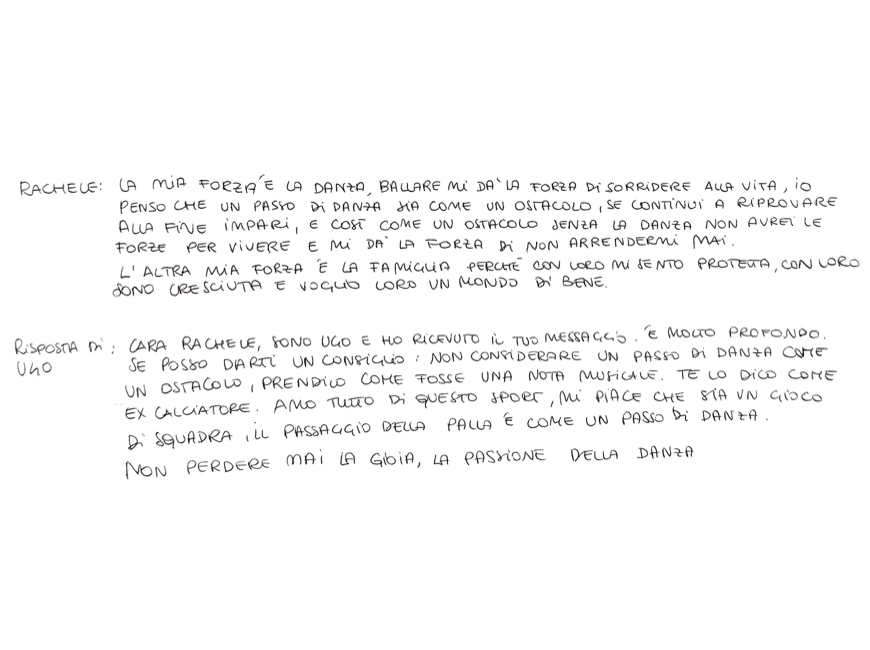 RACHELE: LA MIA FORZA È LA DANZA, BALLARE MI DA' LA FORZA DI SORRIDERE ALLA VITA, IO
PENSO CHE UN PASSO DI DANZA SIA COME UN OSTACOLO, SE CONTINUI A RIPROVARE
ALLA FINE IMPARI, E COSÌ COME UN OSTACOLO SENZA LA DANZA NON AVREI LE
FORZE PER VIVERE E MI DA' LA FORZA DI NON ARRENDERMI MAI.
L'ALTRA MIA FORZA È LA FAMIGLIA PERCHÉ CON LORO MI SENTO PROTETTA, CON LORO
SONO CRESCIUTA E VOGLIO LORO UN MONDO DI BENE.
RISPOSTA DI : CARA RACHELE, SONO UGO E HO RICEVUTO IL TUO MESSAGGIO. È MOLTO PROFONDO.
UGO SE POSSO DARTI UN CONSIGLIO: NON CONSIDERARE UN PASSO DI DANZA COME
UN OSTACOLO, PRENDILO COME FOSSE UNA NOTA MUSICALE. TE LO DICO COME
EX CALCIATORE. AMO TUTTO DI QUESTO SPORT, MI PIACE CHE SIA UN GIOCO
DI SQUADRA, IL PASSAGGIO DELLA PALLA È COME UN PASSO DI DANZA.
NON PERDERE MAI LA GIOIA, LA PASSIONE DELLA DANZA